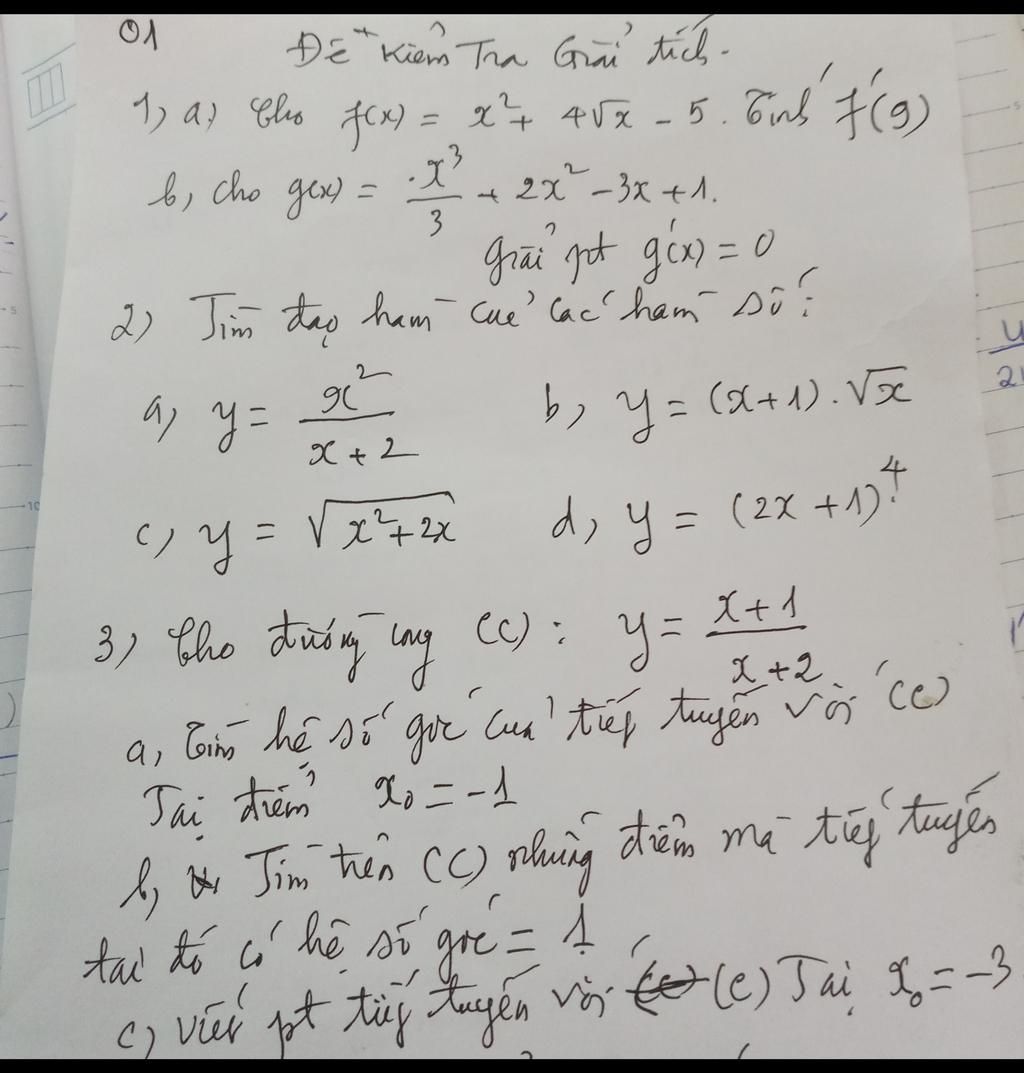 01
Đề Kiểm Tra Giải tích.
1, a, Cho f(x) = x² + 4√x - 5. Tính f'(9)
b, Cho g(x) = x³/3 + 2x² - 3x + 1.
Giải pt g'(x) = 0
2) Tìm đạo hàm của các hàm số:
a, y = x²/(x + 2) b, y = (x+1).√x
c, y = √(x²+2x) d, y = (2x + 1)⁴.
3) Cho đường cong (C): y = (x+1)/(x+2)
a, Tìm hệ số góc của tiếp tuyến với (C)
Tại điểm x₀ = -1
b, Tìm trên (C) những điểm mà tiếp tuyến
tại đó có hệ số góc = 1
c, Viết pt tiếp tuyến với (C) Tại x₀ = -3